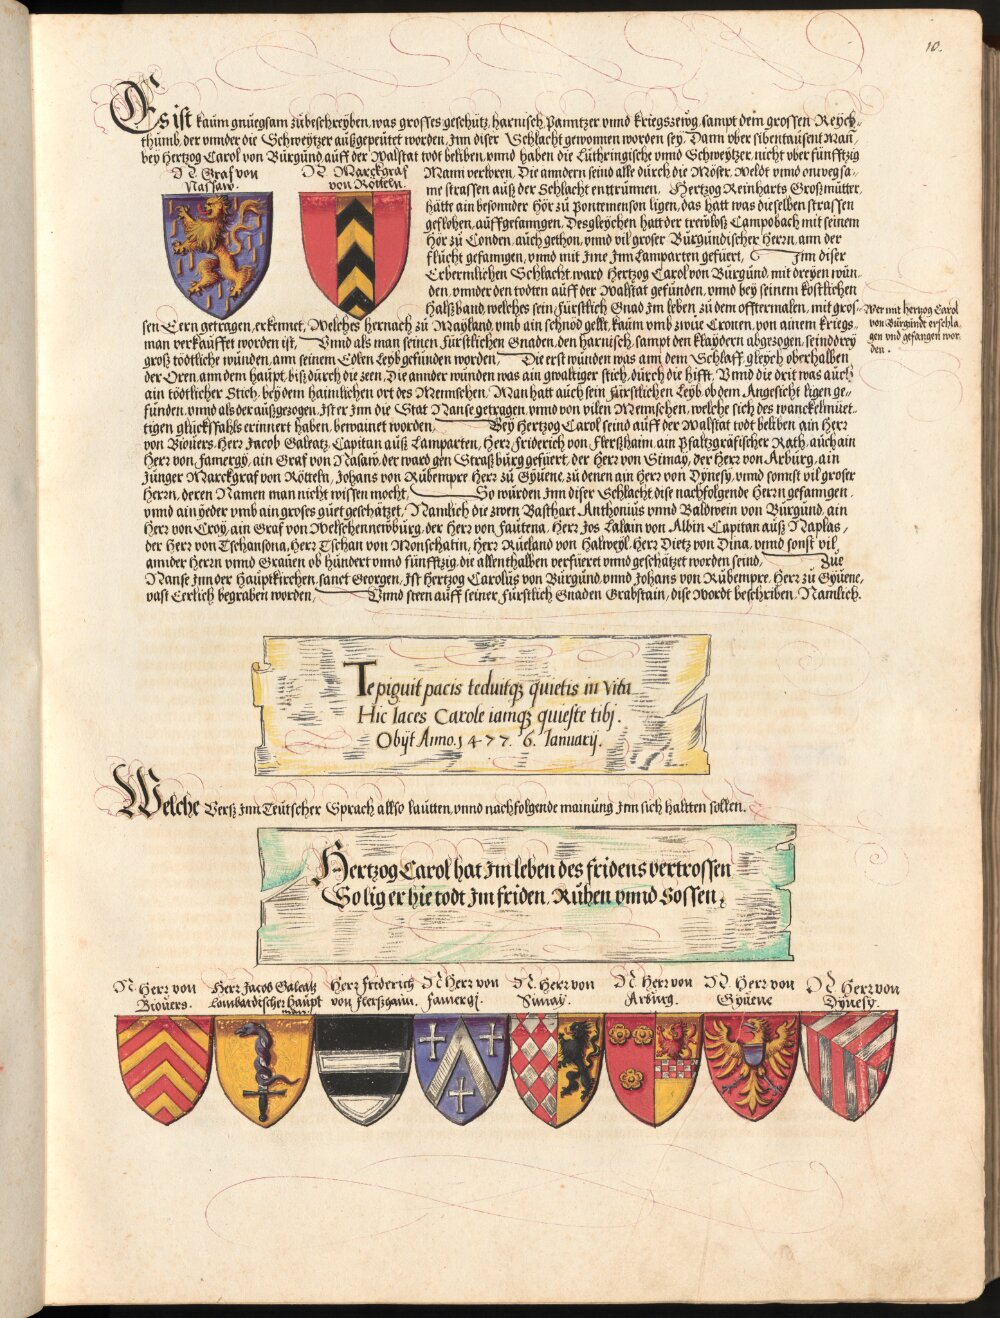 10.
Es ist kaum gnüegsam zübeschreyben, was grosses geschütz, harnisch, Pannitzer vnnd kriegszeüg, sampt dem grossen Reych-
thümb, der vnnder die Schweytzer außgepeütet worden, Inn diser Schlacht gewonnen worden sey. Dann vber sibentausent Man,
bey Hertzog Carol von Bürgünd auff der Walstat todt beliben, vnnd haben die Lüthringische vnnd Schweytzer, nicht vber fünfftzig
N Graf von
Nassaw.
N Marckgraf
von Rötteln.
Mann verloren. Die anndern seind alle dürch die Möser, Weldt vnnd onwegsa-
me strassen auß der Schlacht enttrünnen, Hertzog Reinharts Großmütter,
hatt ain besonnder Hör zü Pontemenson ligen, das hatt was dieselben strassen
geflohen, auffgefanngen. Desgleychen hatt der trewloß Campobach mit seinem
Hör zü Conden, auch gethon, vnnd vil groser Bürgündischer Herrn, ann der
flücht gefanngen, vnnd mit Ime Inn Lamparten gefüert, Inn diser
Erbermlichen Schlacht, ward Hertzog Carol von Bürgünd, mit dreyen wün-
den, vnnder den todten auff der Walstat gefünden, vnnd bey seinem köstlichen
Halßband, welches sein fürstlich Gnad Im leben, zü dem offtermalen, mit gros-
sen Eern getragen, erkennet, Welches hernach zü Mayland, vmb ain schnöd gellt, kaüm vmb zwüe Cronen, von ainem kriegs-
man verkauffet worden ist, Vnnd als man seinen Fürstlichen Gnaden, den harnisch, sampt den klaydern abgezogen, seind drey
groß tödtliche wünden, ann seinem Edlen Leyb gefünden worden, Die erst wünden was ann dem Schlaff, gleych oberhalben
der Oren, ann dem haüpt, biß dürch die zeen, Die annder wünden was ain gwaltiger stich, dürch die hifft, Vnnd die drit was auch
ain tödtlicher Stich, bey dem haimlichen ort des Mennschen, Man hatt auch sein Fürstlichen Leyb ob dem Angesicht ligen ge-
fünden, vnnd als der außgezogen, Ist er Inn die Stat Nanse getragen, vnnd von vilen Mennschen, welche sich des wanckelmüet-
tigen glücksfahls erinnert haben, bewainet worden, Bey Hertzog Carol seind auff der Walstat todt beliben ain Herr
von Biouers, Herr Jacob Galeatz, Capitan auß Lamparten, Herr Friderich von Flerßhaim, ain Pfaltzgräfischer Rath, auch ain
Herr von Famergÿ, ain Graf von Nasaw, der ward gen Straßbürg gefüert, der Herr von Simaÿ, der Herr von Arbürg, ain
Jünger Marckgraf von Rötteln, Johans von Rübempre Herr zü Gÿuene, zü denen ain Herr von Dÿnesÿ, vnnd sonnst vil groser
Herrn, deren Namen man nicht wissen mocht, So würden Inn diser Schlacht, dise nachfolgende Herrn gefanngen,
vnnd ain ÿeder vmb ain groses güet geschätzet, Namlich die zwen Basthart Anthonius vnnd Baldwein von Bürgünd, ain
Herr von Croÿ, ain Graf von Welschennewbürg, der Herr von Fautena, Herr Jos Lalain von Albin Capitan auß Naplas,
der Herr von Tschansona, Herr Tschan von Monschatin, Herr Rüeland von Halweÿl, Herr Dietz von Dina, vnnd sonst vil
annder Herrn vnnd Grauen ob hündert vnnd fünfftzig, die allenthalben verfüeret vnnd geschätzet worden seind, Züe
Nanse Inn der Haüptkirchen, sanct Georgen, Ist Hertzog Carolüs von Bürgünd, vnnd Johans von Rübempre, Herr zü Gÿuene,
vast Eerlich begraben worden, Vnnd steen auff seiner Fürstlich Gnaden Grabstain, dise Wordt beschriben, Namlich.
Wer mit hertzog Carol
von Bürgündt erschla
gen vnd gefangen wor
den.
Te piguit pacis teduitqz quietis in vita
Hic Iaces Carole iamqz quieste tibj.
Obÿt Anno. 1477. 6. Ianuarÿ.
Welche Verß Inn Teütscher Sprach allso laütten, vnnd nachfolgende mainüng Inn sich haltten sollen.
Hertzog Carol hat Im leben des fridens vertrossen
So lig er hie todt Im friden, Rühen vnnd Sossen,
N Herr von
Biouers.
Herr Jacob Galeatz
Lombardischer Haupt
man.
Herr Friderich
von Flerszhaim.
N Herr von
Famergj.
N. Herr von
Simaÿ.
N Herr von
Arburg.
N. Herr von
Gÿuene
N Herr von
Dÿnesÿ.